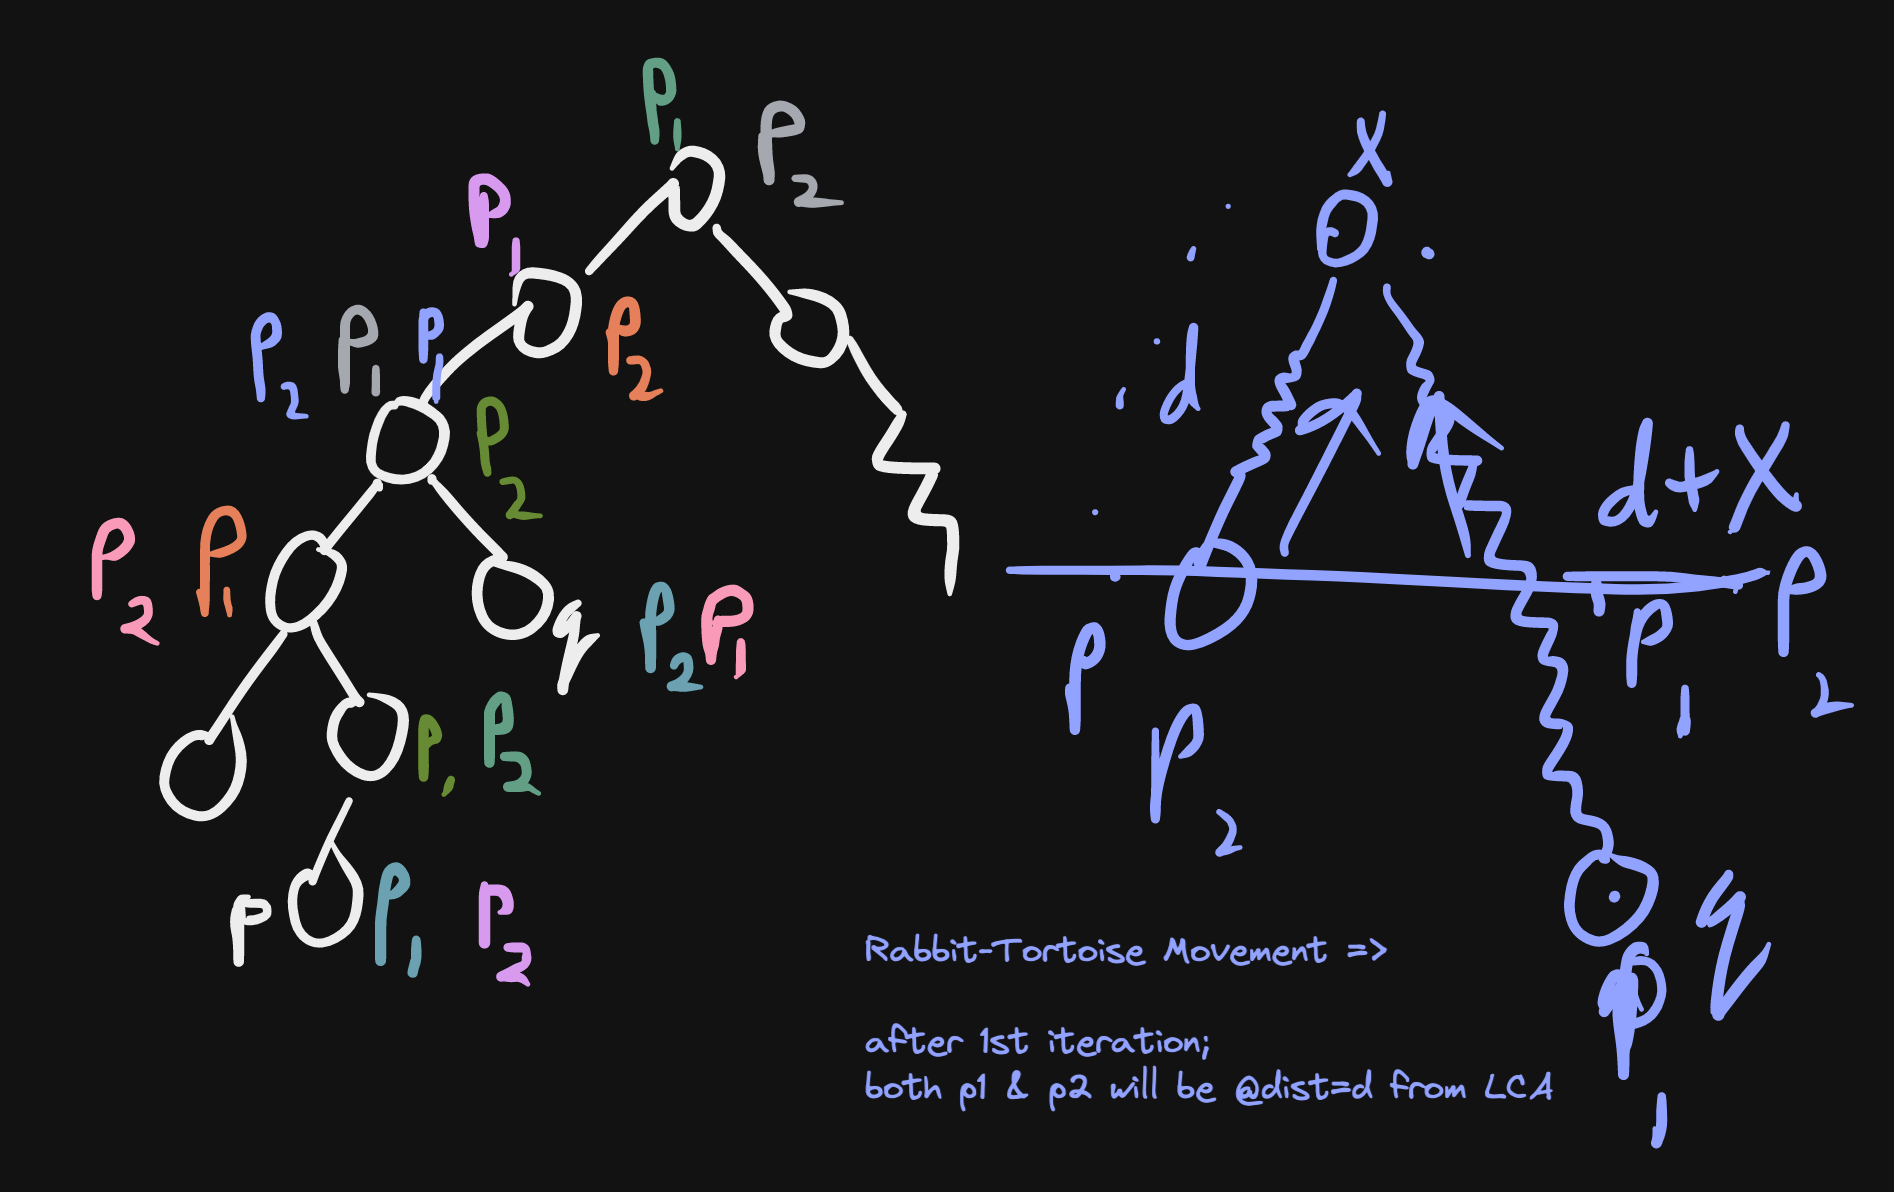 P1
P2
P1
P2
P1
P1
P2
P2
P2
P1
q
P2
P1
P1
P2
P
P1
P2
X
d
d+X
P
P2
P1
P2
q
P1
Rabbit-Tortoise Movement =>
after 1st iteration;
both p1 & p2 will be @dist=d from LCA